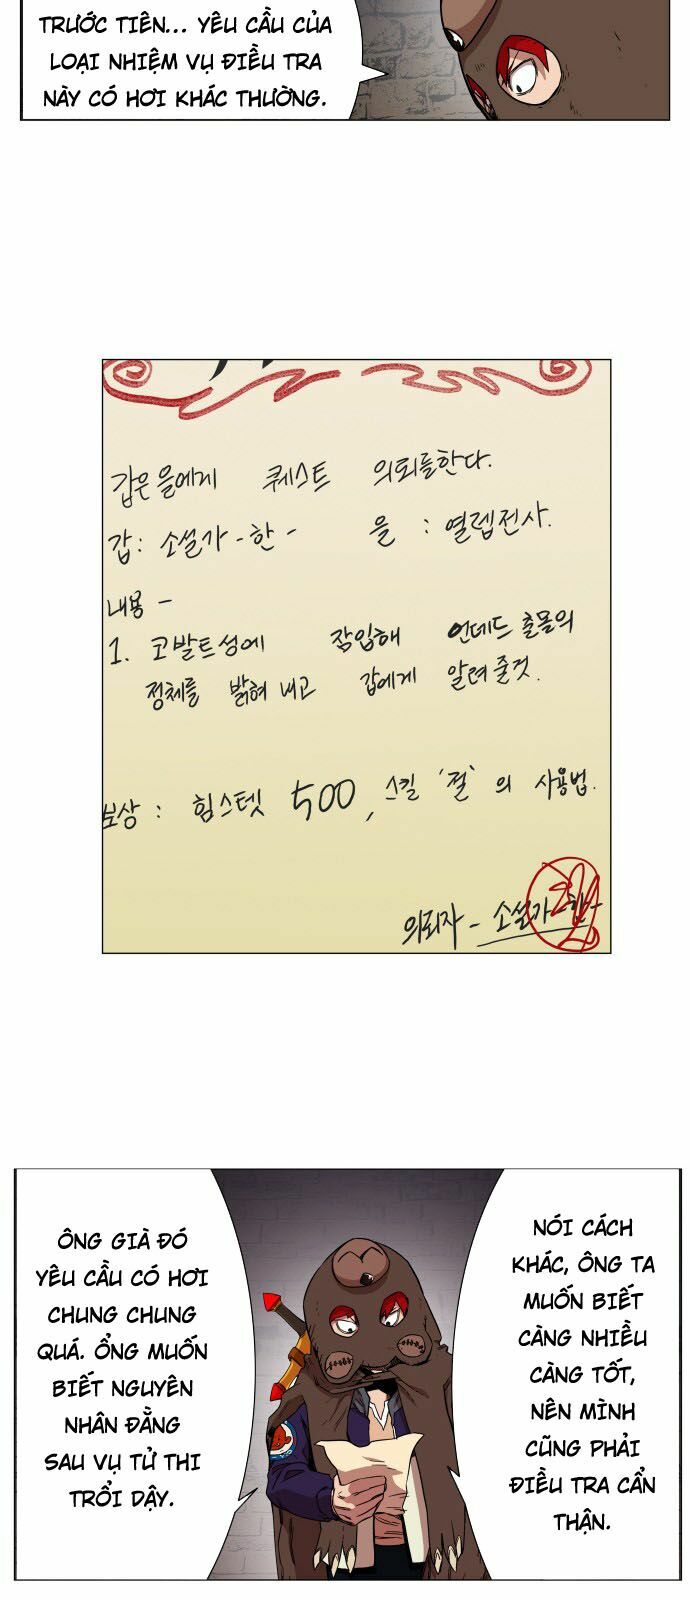 TRƯỚC TIÊN... YÊU CẦU CỦA
LOẠI NHIỆM VỤ ĐIỀU TRA
NÀY CÓ HƠI KHÁC THƯỜNG.
갑은 을에게 퀘스트 의뢰를한다.
갑: 소설가-한- 을 : 열렙전사.
내용 -
1. 코발트성에 잠입해 언데드 출몰의
정체를 밝혀 내고 갑에게 알려 줄것.
보상 : 힘스텟 500, 스킬 '절'의 사용법.
의뢰자 - 소설가-한-
ÔNG GIÀ ĐÓ
YÊU CẦU CÓ HƠI
CHUNG CHUNG
QUÁ. ỔNG MUỐN
BIẾT NGUYÊN
NHÂN ĐẰNG
SAU VỤ TỬ THI
TRỔI DẬY.
NÓI CÁCH
KHÁC, ÔNG TA
MUỐN BIẾT
CÀNG NHIỀU
CÀNG TỐT,
NÊN MÌNH
CŨNG PHẢI
ĐIỀU TRA CẨN
THẬN.